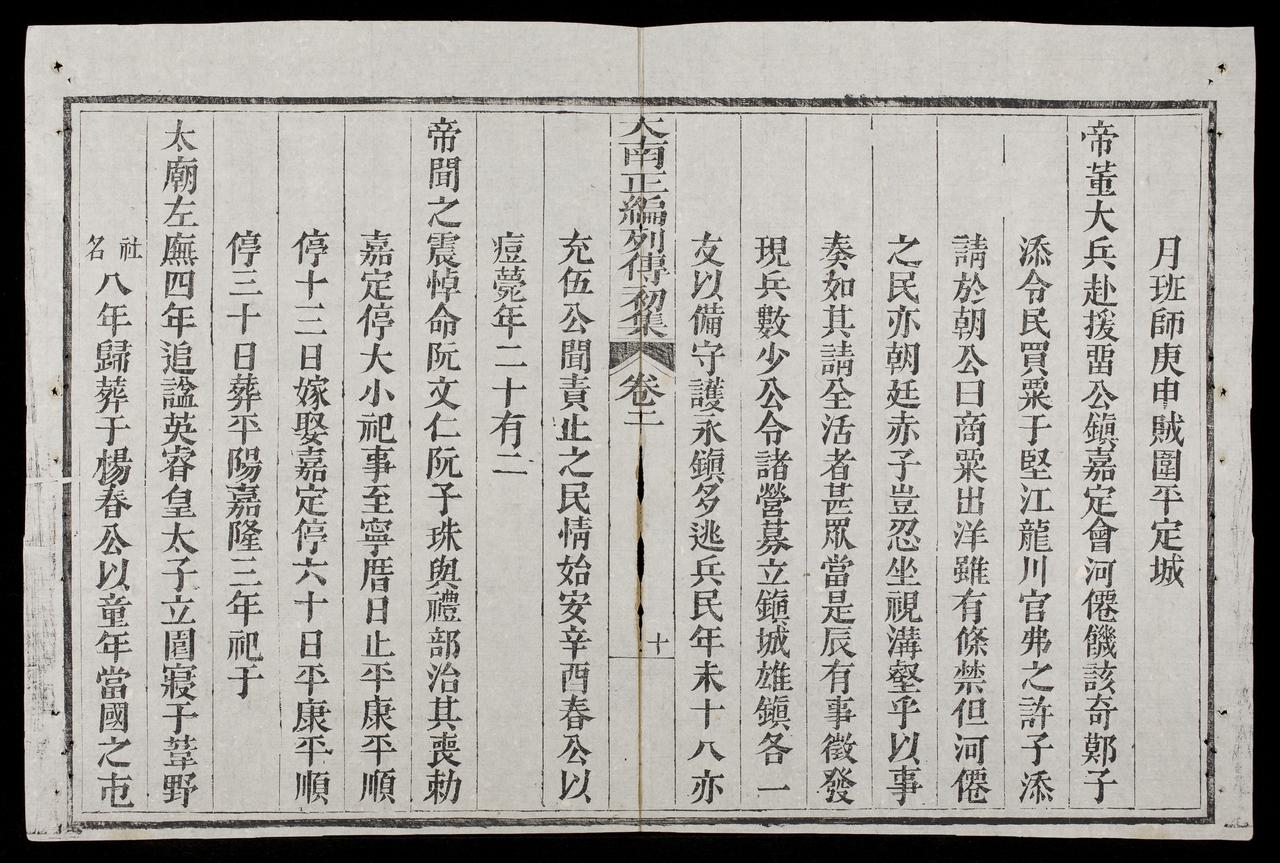 月班師庚申賊圍平定城
帝董大兵赴援畱公鎭嘉定會河僊饑該奇鄭子
添令民買粟于堅江龍川官弗之許子添
請於朝公曰商粟出洋雖有條禁但河僊
之民亦朝廷赤子豈忍坐視溝壑乎以事
奏如其請全活者甚眾當是辰有事徵發
現兵數少公令諸營募立鎭城雄鎭各一
友以備守護永鎭多逃兵民年未十八亦
大南正編列傳初集 卷二 十
充伍公聞責止之民情始安辛酉春公以
痘薨年二十有二
帝聞之震悼命阮文仁阮子珠與禮部治其喪勅
嘉定停大小祀事至寧厝日止平康平順
停十三日嫁娶嘉定停六十日平康平順
停三十日葬平陽嘉隆三年祀于
太廟左廡四年追諡英睿皇太子立園寢于葦野
社名八年歸葬于楊春公以童年當國之屯